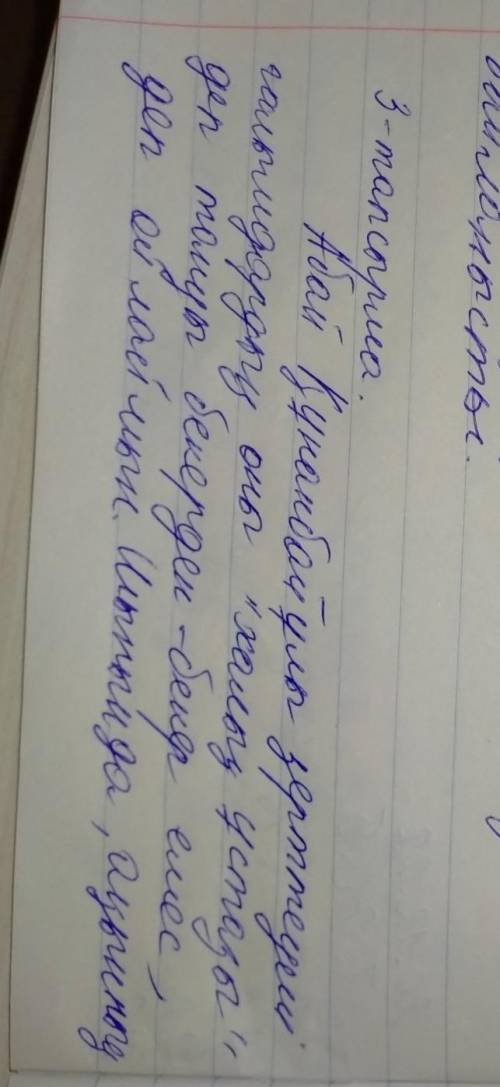 байланысты.
3-тапсырма.
Абай Құнанбайұлы зерттеуші
ғалымдардың оны "халық ұстазы"
деп тануы бекерден-бекер емес,
деп ойлаймын. Шынында, ақынның